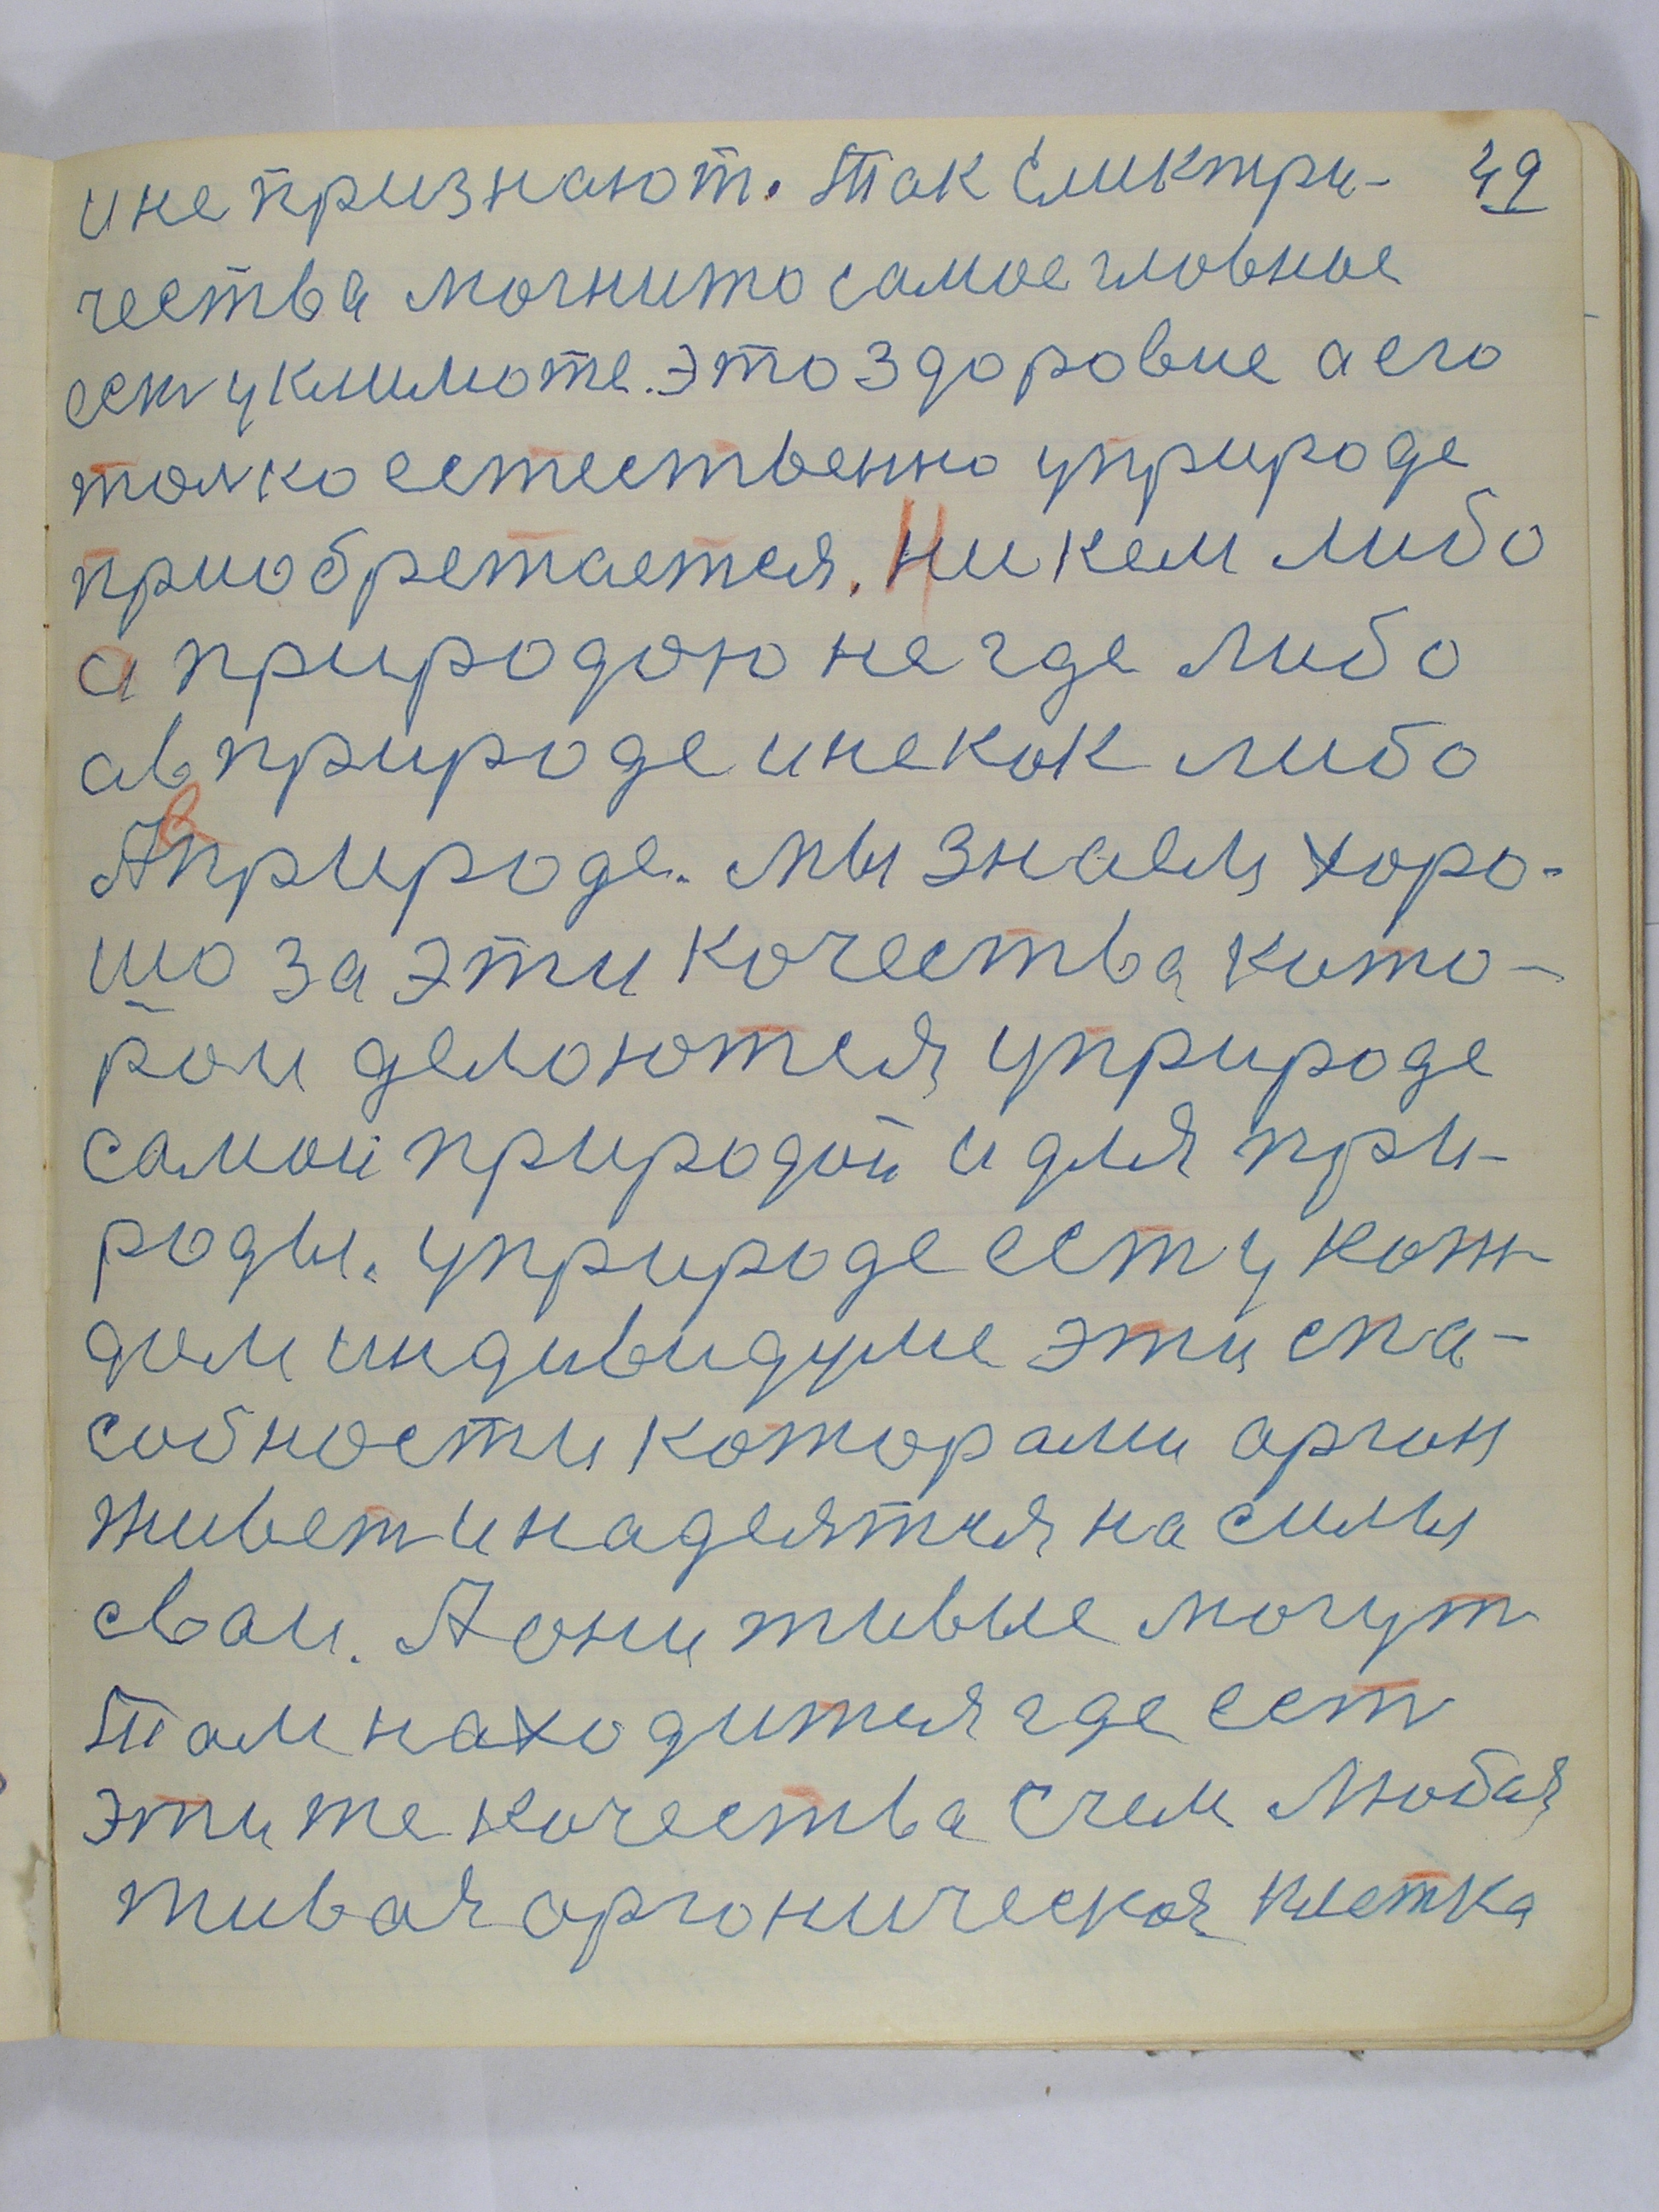 и не признают. Так електри- 49
чества могнито самое гловное
ест у климоте. это здоровие а его
толко естественно уприроде
приобретается. Ни кем либо
а природою не где либо
ав природе и не как либо
А в природе. мы знаем хоро-
шо за эти кочества кото-
рои делоются уприроде
самой природой и для при-
роды. уприроде ест у кож-
дом индивидуме эти спа-
собности которами орган
живет и надеятся на силы
сваи. А они живые могут
Там находится где ест
эти же кочества с чем любая
живая органическая клетка